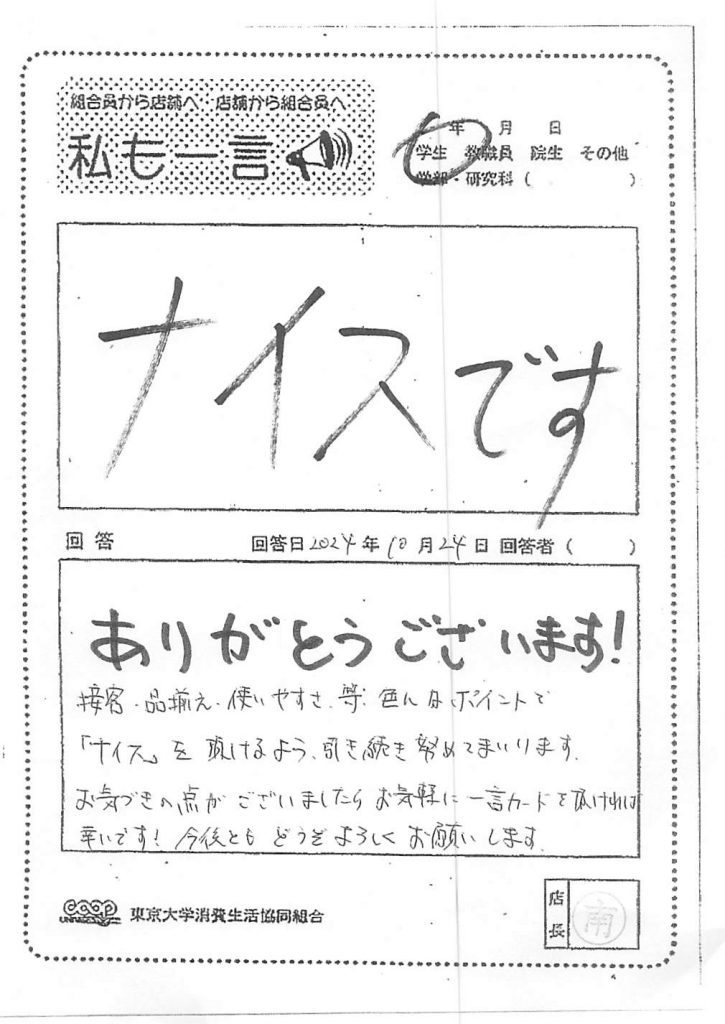 組合員から店舗へ 店舗から組合員へ
私も一言
年 月 日
学生 教職員 院生 その他
学部・研究科( )
ナイスです
回答 回答日2024年10月24日 回答者( )
ありがとうございます!
接客・品揃え・使いやすさ、等、色んなポイントで
「ナイス」を頂けるよう、引き続き努めてまいります。
お気づきの点がございましたらお気軽に一言カードを頂ければ
幸いです!今後ともどうぞよろしくお願いします。
coop
東京大学消費生活協同組合
店長
南